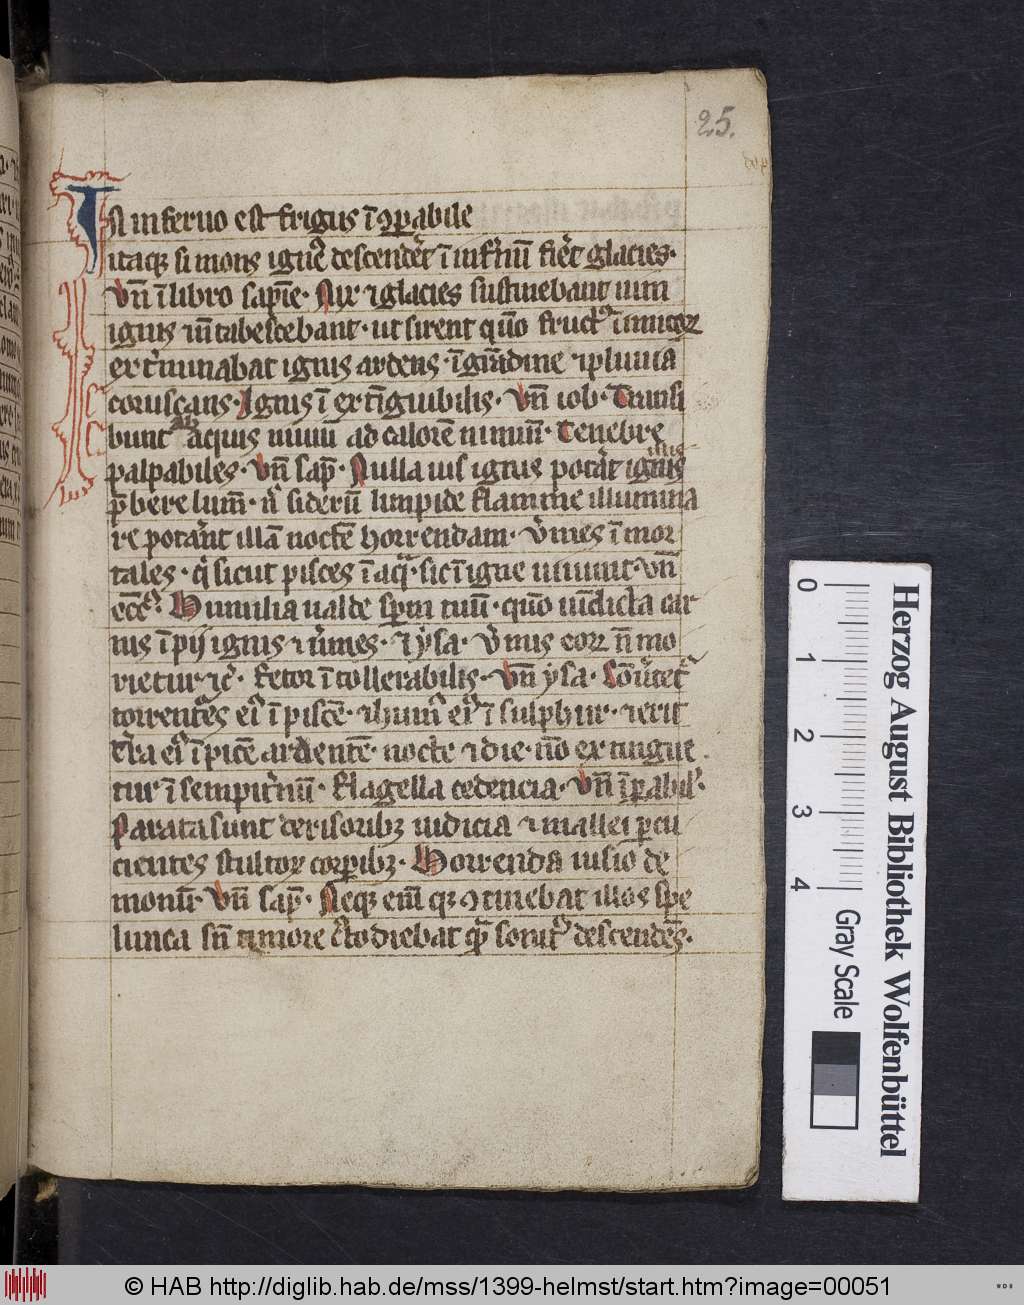 25.
IN inferno est frigus ī ꝯpabile
itaqꝫ si mons igneꝰ descenderet ī infernū fieret glacies·
Vn̄ ī libro sapīe· Nix ⁊ glacies sustinebant uim
ignis ⁊ n̄ tabescebant· ut scirent qm̄o fructꝰ inimicoꝝ
exterminabat ignis ardens· ī grādine ⁊ pluuia
coruscans· Ignis ī extīguibilis· Vn̄ iob· Transi
bunt ab aquis niuiū ad calorē nimiū· Tenebre
palpabiles· Vn̄ sap̄· Nulla uis ignis poterat illis
p̄bere lum̄· n̄ siderū limpide flamme illumina
re poterant illā noctē horrendam· Vermes ī mor
tales· qͥ sicut pisces ī aqͣ· sic ī igne uiuunt Vn̄
ecc̄ꝰ· Humilia ualde sp̄m tuū· qm̄ uīdicta car
nis īpij ignis ⁊ vermes· ⁊ ysa· Vermis eoꝝ n̄ mo
rietur ⁊c̄· Fetor ītollerabilis· Vn̄ ysa· Cōuertēt̄
torrentes eiꝰ ī piscē· ⁊ humꝰ eiꝰ ī sulphur· ⁊ erit
terra eiꝰ ī picē ardentē· nocte ⁊ die· nō extingue
tur ī sempiternū· Flagella cedencia· Vn̄ ī ꝑabil̄·
Parata sunt derisoribꝫ iudicia ⁊ mallei ꝑcu
cientes stultoꝝ corꝑibꝫ· Horrenda uisio de
monū Vn̄ sap̄· Neqꝫ em̄ q̄ ꝯtinebat illos spe
lunca sn̄ timore custodiebat qꝛ sonitꝰ descendēs·
Herzog August Bibliothek Wolfenbüttel
0 1 2 3 4 Gray Scale
© HAB http://diglib.hab.de/mss/1399-helmst/start.htm?image=00051